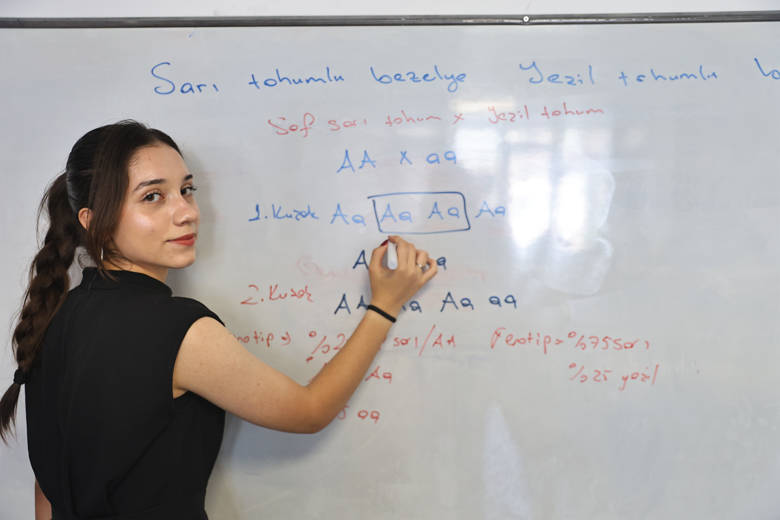 Sarı tohumlu bezelye Yeşil tohumlu
Saf sarı tohum x Yeşil tohum
AA x aa
1. Kuşak Aa Aa Aa Aa
2. Kuşak AA Aa aa
sarı/AA Fenotip → %75 sarı
Aa %25 yeşil
aa